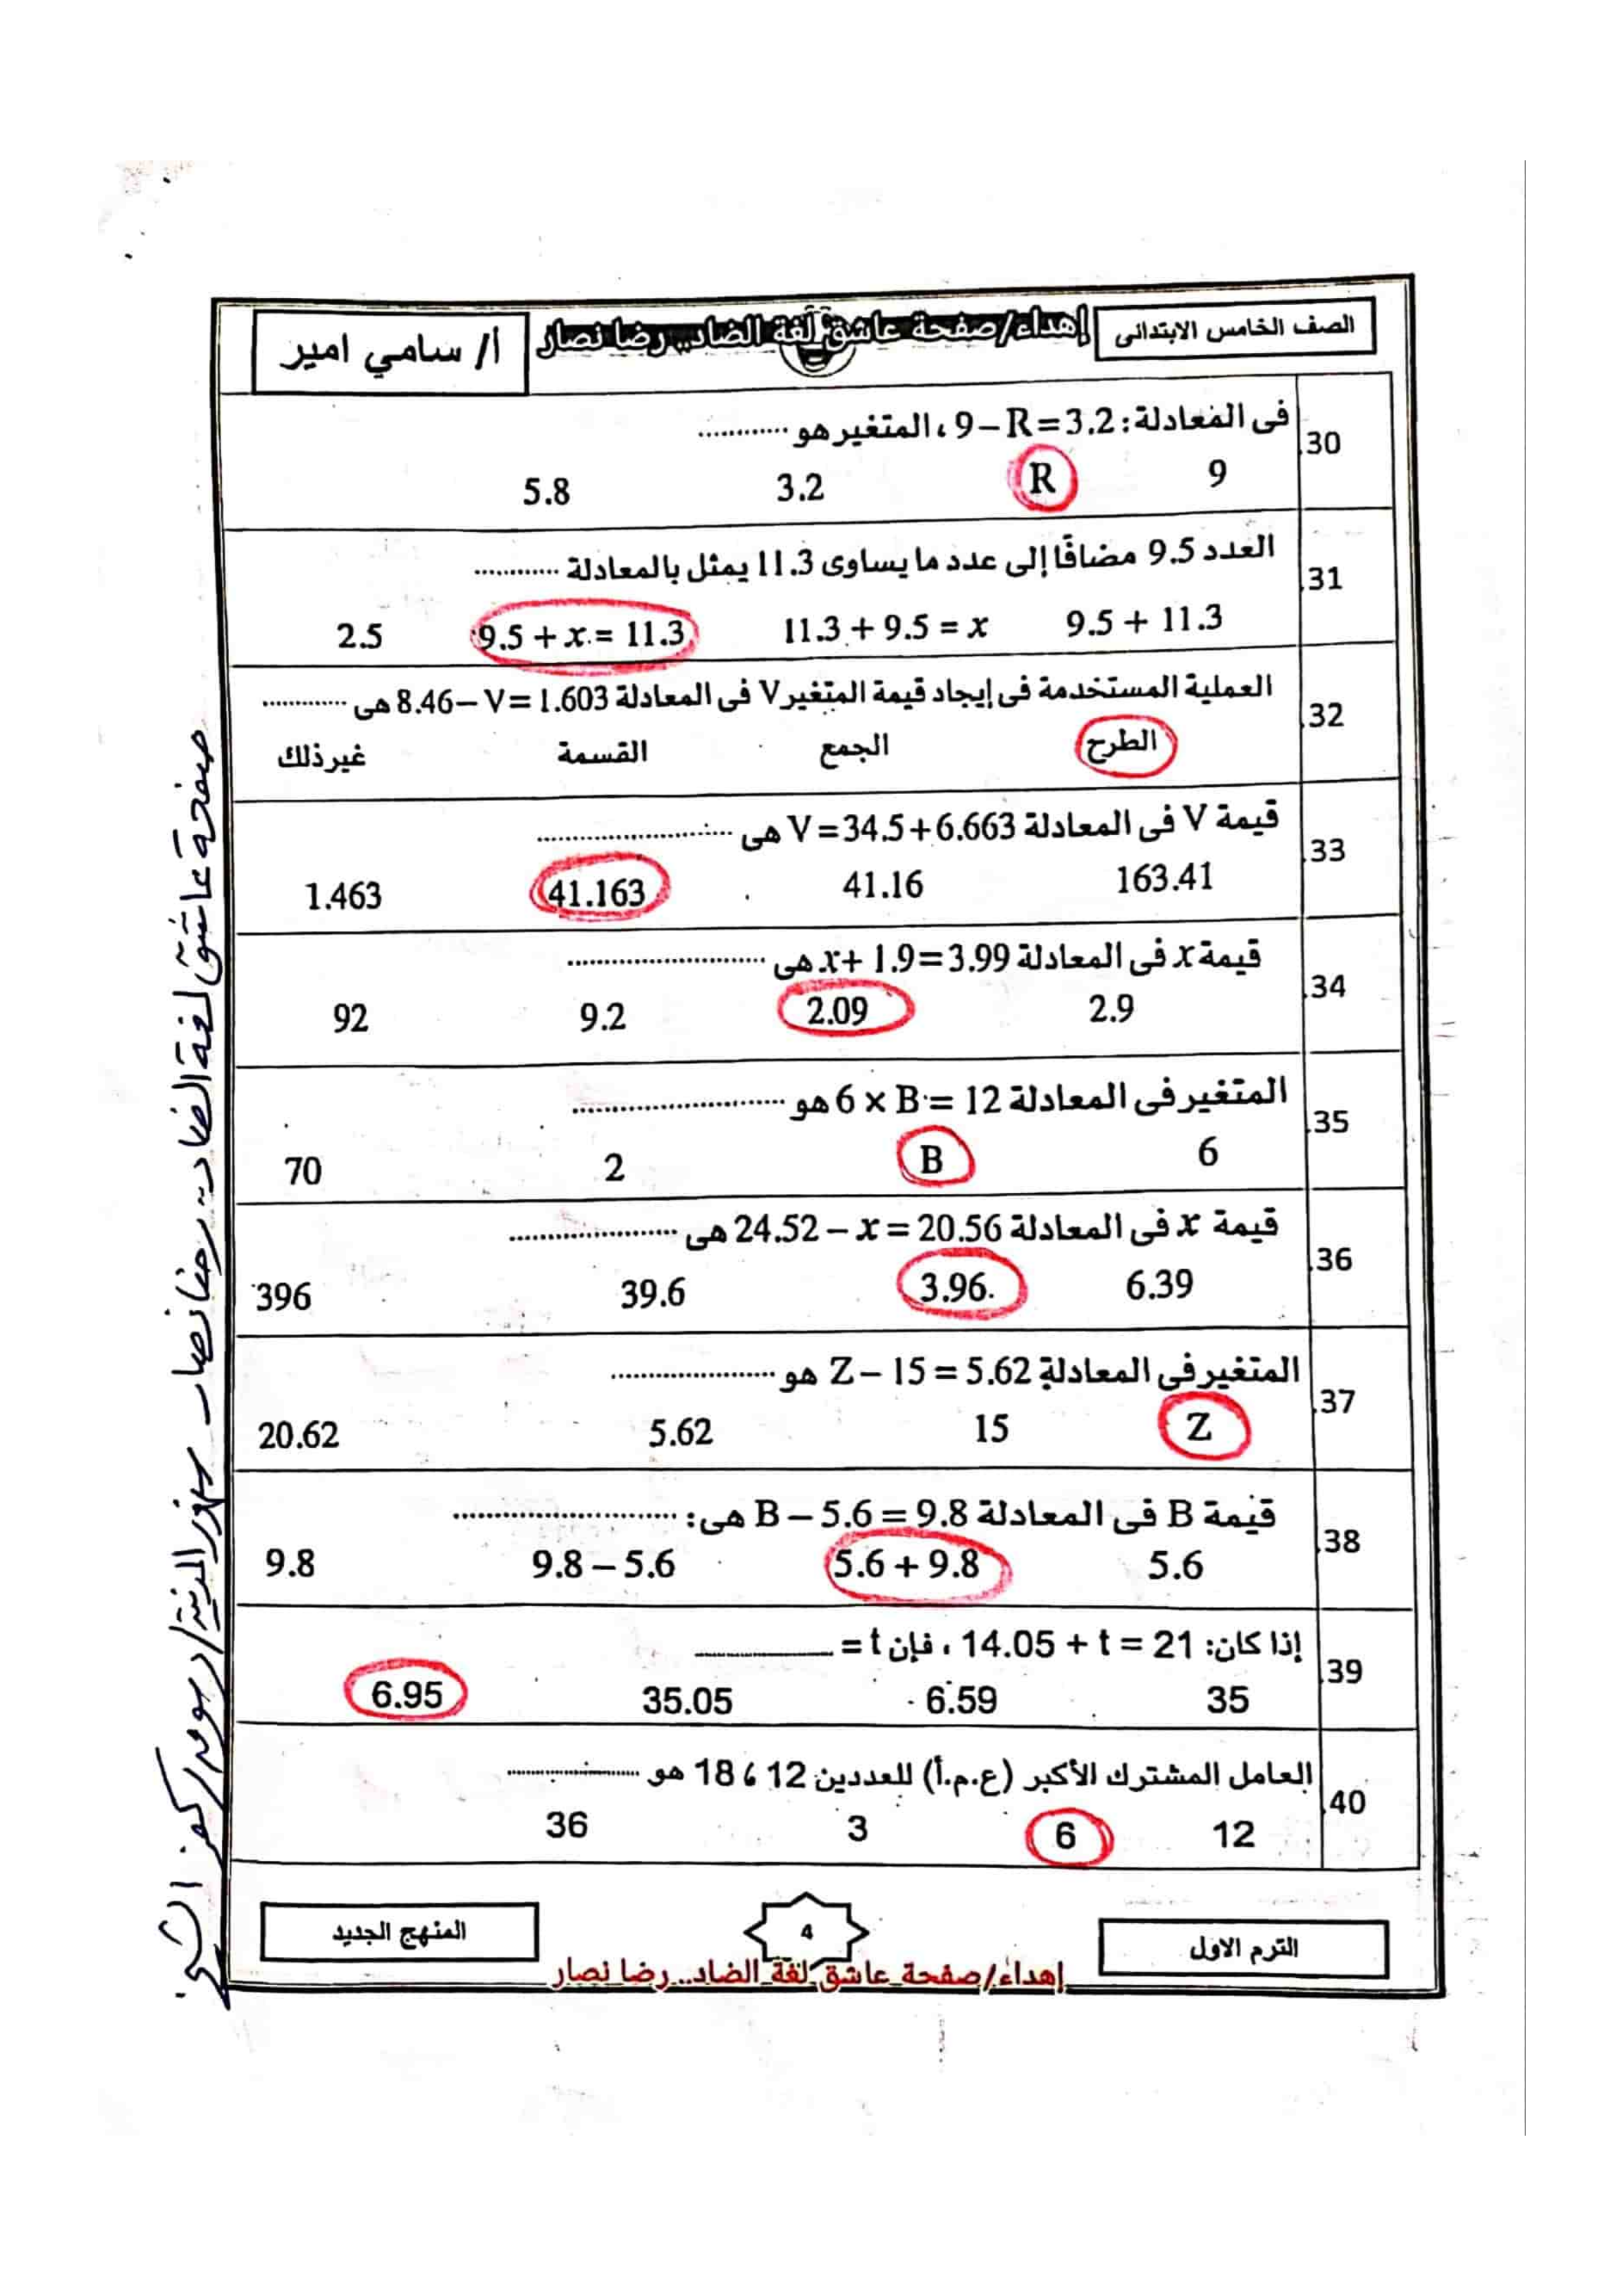 الصف الخامس الابتدائى
إهداء/صفحة عاشق لغة الضاد.. رضا نصار
أ/ سامي امير
30. فى المعادلة: 9 – R = 3.2 ، المتغير هو ............
9 R 3.2 5.8
31. العدد 9.5 مضافًا إلى عدد ما يساوى 11.3 يمثل بالمعادلة ............
9.5 + 11.3 11.3 + 9.5 = x 9.5 + x = 11.3 2.5
32. العملية المستخدمة فى إيجاد قيمة المتغير V فى المعادلة 8.46 – V = 1.603 هى ............
الطرح الجمع القسمة غير ذلك
33. قيمة V فى المعادلة V = 34.5 + 6.663 هى ............
163.41 41.16 41.163 1.463
34. قيمة x فى المعادلة x + 1.9 = 3.99 هى ............
2.9 2.09 9.2 92
35. المتغير فى المعادلة 6 × B = 12 هو ............
6 B 2 70
36. قيمة x فى المعادلة 24.52 – x = 20.56 هى ............
6.39 3.96 39.6 396
37. المتغير فى المعادلة Z – 15 = 5.62 هو ............
Z 15 5.62 20.62
38. قيمة B فى المعادلة B – 5.6 = 9.8 هى: ............
5.6 5.6 + 9.8 9.8 – 5.6 9.8
39. إذا كان: 14.05 + t = 21 ، فإن t = ............
35 6.59 35.05 6.95
40. العامل المشترك الأكبر (ع.م.أ) للعددين 12 ، 18 هو ............
12 6 3 36
الترم الاول
4
المنهج الجديد
إهداء/صفحة عاشق لغة الضاد.. رضا نصار
صفحة عاشق لغة الضاد.. رضا نصار